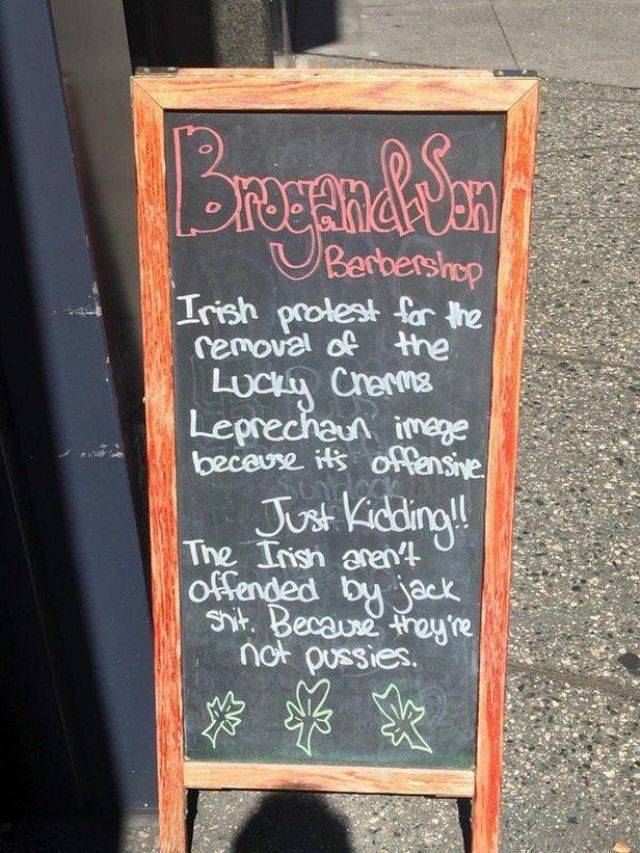 Brogan & Son
Barbershop
Irish protest for the
removal of the
Lucky Charms
Leprechaun image
because it's offensive.
Just Kidding!!
The Irish aren't
offended by jack
shit. Because they're
not pussies.